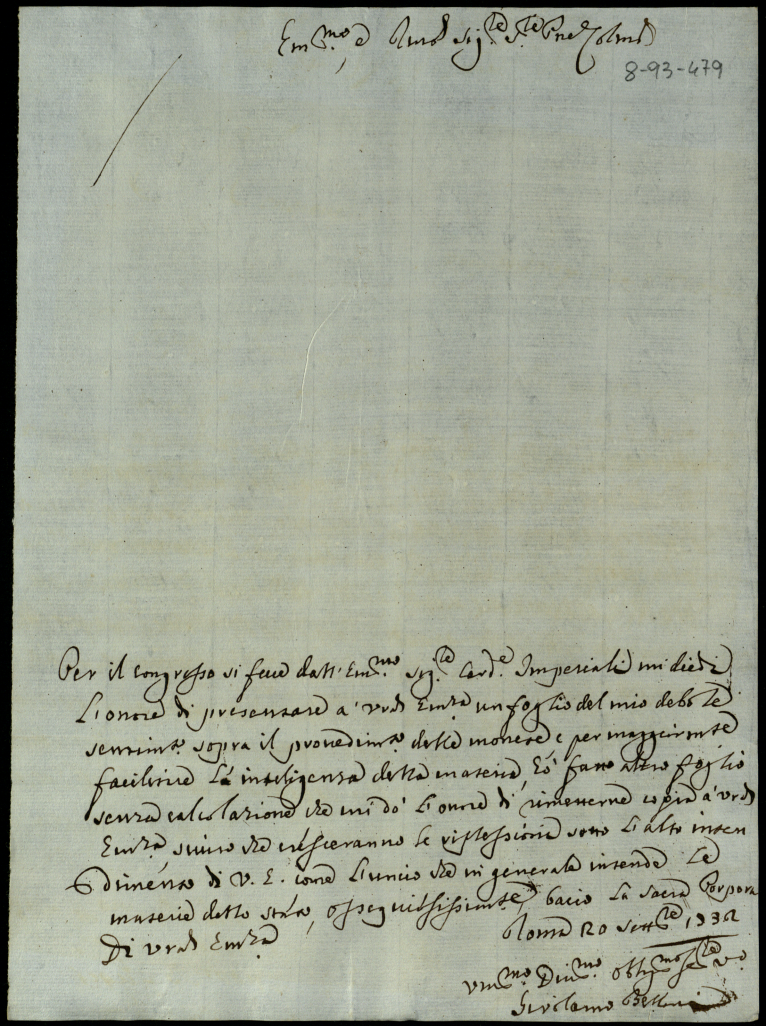 Em.mo, e Rmo Sig.re S.re Pne Colmo
8-93-479
Per il congresso si fece dall'Em.mo Sig.re Card.e Imperiali mi diedi
L'onore di presentare a' Vra Emza un foglio del mio debole
sentim.to sopra il provedim.to delle monete e per maggiormte
facilitare La inteligenza della materia, hò fatto altro foglio
senza calcolazione che mi dò L'onore di rimetterne copia a' Vra
Emza, che le riflessioni sotto L'alto inten
dimento di V. E. come L'unico che in generale intende Le
materie dello stato, ossequiosissimte bacio La Sacra Porpora
Di Vra Emza
Roma 20 Sett.re 1732
Um.mo Div.mo Obblig.mo Se.re Vo
Girolamo Belloni